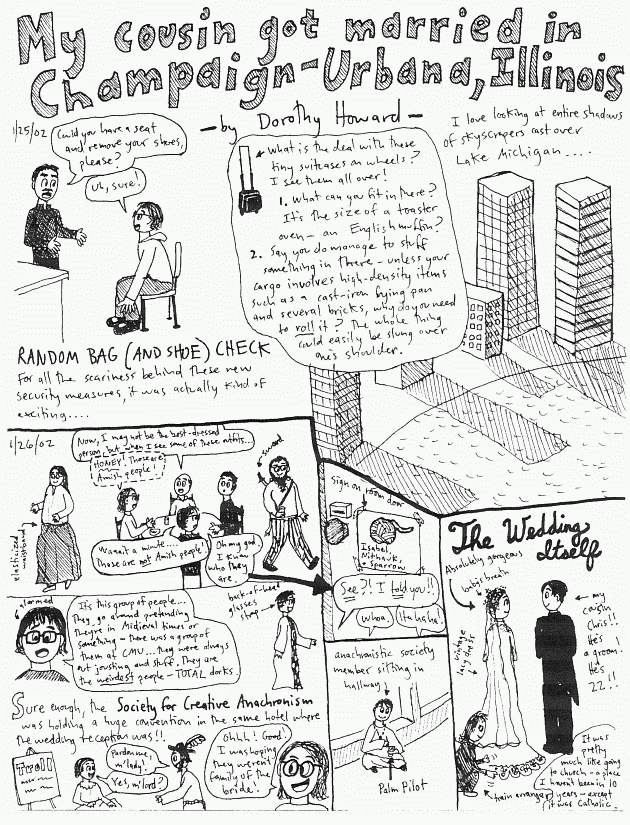 My cousin got married in
Champaign-Urbana, Illinois
- by Dorothy Howard -
1/25/02
Could you have a seat
and remove your shoes,
please?
Uh, sure!
What is the deal with these
tiny suitcases on wheels?
I see them all over!
1. What can you fit in there?
It's the size of a toaster
oven - an English muffin?
2. Say you do manage to stuff
something in there - unless your
cargo involves high-density items
such as a cast-iron frying pan
and several bricks, why do you need
to roll it? The whole thing
could easily be slung over
one's shoulder.
I love looking at entire shadows
of skyscrapers cast over
Lake Michigan....
RANDOM BAG (AND SHOE) CHECK
For all the scariness behind these new
security measures, it was actually kind of
exciting....
1/26/02
Now, I may not be the best-dressed
person, but when I see some of these outfits...
HONEY! Those are
Amish people!
elasticized
waistband
sword
Waaait a minute...
Those are not Amish people!
Oh my god
I know
who they
are.
sign on room door
Isabel,
+ Sparrow
See?! I told you!!
Whoa.
Ha haha!
alarmed
It's this group of people...
They go around pretending
they're in Midieval times or
something - there was a group of
them at CMU... they were always
out jousting and stuff. They are
the weirdest people - TOTAL dorks.
back-of-head
glasses
strap
Sure enough, the Society for Creative Anachronism
was holding a huge convention in the same hotel where
the wedding reception was!!
Troll
Pardon me,
m'lady!
Yes, m'lord?
Ohhh! Good!
I was hoping
they weren't
family of the
bride!
anachronistic society
member sitting in
hallway
Palm Pilot
The Wedding
Itself
Absolutely gorgeous
baby's breath
vintage
lacy dress
my
cousin
Chris!!
He's
a groom!
He's
22!!
train arranger
It was
pretty
much like going
to church - a place
I haven't been in 10
years - except
it was Catholic.